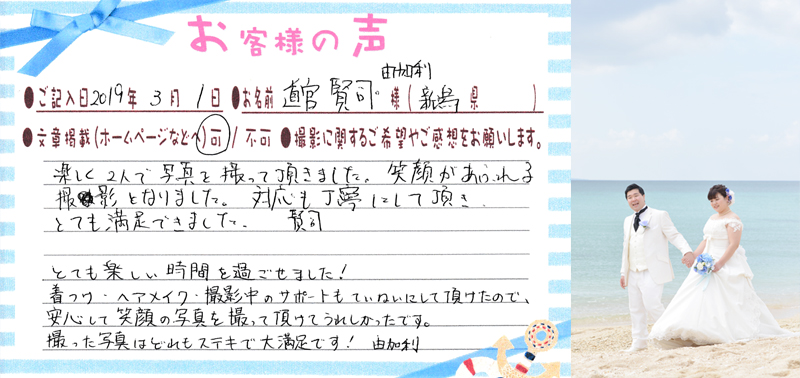 お客様の声
由加利
●ご記入日2019年 3月 1日 ●お名前 直官 賢司・様(新潟県 )
●文章掲載(ホームページなどへ)可/不可 ●撮影に関するご希望やご感想をお願いします。
楽しく2人で写真を撮って頂きました。笑顔があふれる
撮影となりました。対応も丁寧にして頂き、
とても満足できました。 賢司
とても楽しい時間を過ごせました!
着つけ・ヘアメイク・撮影中のサポートもていねいにして頂けたので、
安心して笑顔の写真を撮って頂けてうれしかったです。
撮った写真はどれもステキで大満足です! 由加利